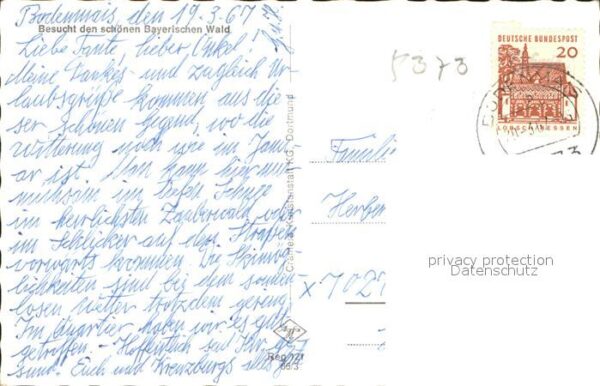 Bodenmais, den 19.3.67
Besucht den schönen Bayerischen Wald
Liebe Tante, lieber Onkel!
Meine Dankes- und zugleich Ur-
laubsgrüße kommen aus die-
ser schönen Gegend, wo die
Witterung noch wie im Janu-
ar ist. Man kann hier nur
mühsam im tiefen Schnee
im herrlichsten Zauberwald oder
im Schlicker auf den Straßen
vorwärts kommen. Die Skimög-
lichkeiten sind bei dem sonnen-
losen Wetter trotzdem gering.
Im Quartier haben wir es gut
getroffen. - Hoffentlich seid Ihr ge-
sund. Euch und Kreuzburgs alles
Cramers Kunstanstalt KG, Dortmund
Reg 121
65/3
5373
DEUTSCHE BUNDESPOST
20
LORSCH/HESSEN
Familie
Herber
x 702
privacy protection
Datenschutz